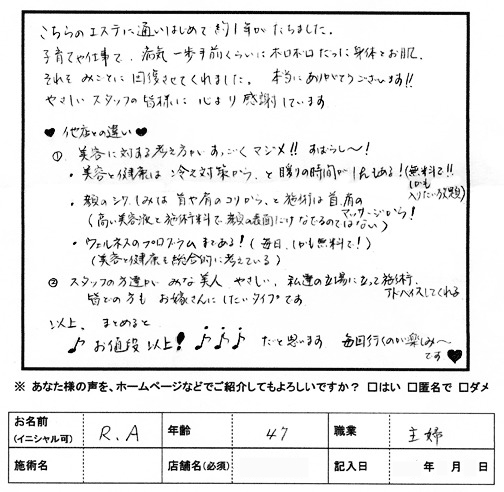 こちらのエステに通いはじめて約1年がたちました。
子育てや仕事で、病気一歩手前くらいにボロボロだった身体とお肌、
それをみごとに回復させてくれました。本当にありがとうございます!!
やさしいスタッフの皆様に心より感謝しています
♥他店との違い♥
① 美容に対する考え方がすっごくマジメ!! すばらし〜!
・美容と健康は冷え対策から、と踊りの時間が1hもある!(無料で!!
しかも
入りたい放題)
・顔のシワ、しみは首や肩のコリから、と施術は首、肩の
マッサージから!
(高い美容液と施術料で顔の表面だけなでるのではない)
・ウェルネスのプログラムまである!(毎日、しかも無料で!)
(美容と健康を総合的に考えている)
② スタッフの方達がみな美人、やさしい、私達の立場に立って施術、
アドバイスしてくれる
皆どの方もお嫁さんにしたいタイプです
以上、まとめると
♪お値段以上!♪♪♪ だと思います 毎回行くのが楽しみ〜
です♥
※ あなた様の声を、ホームページなどでご紹介してもよろしいですか? □はい □匿名で □ダメ
お名前 (イニシャル可) R.A 年齢 47 職業 主婦
施術名 店舗名(必須) 記入日 年 月 日